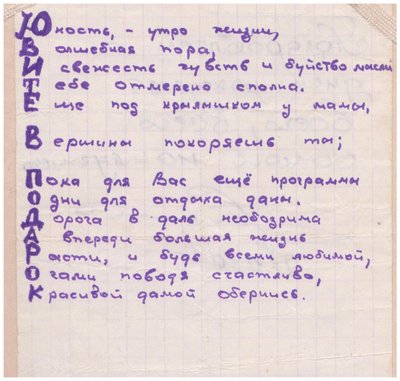 Юность, - утро жизни,
Волшебная пора,
И свежесть чувств и буйство мысли
Тебе отмерено сполна.
Еще под крылышком у мамы,
Вершины покоряешь ты;
Пока для Вас ещё программы
Одни для отдыха даны.
Дорога в даль необозрима
А впереди большая жизнь
Расти, и будь всеми любимой,
Очами поводя счастливо,
Красивой дамой обернись.